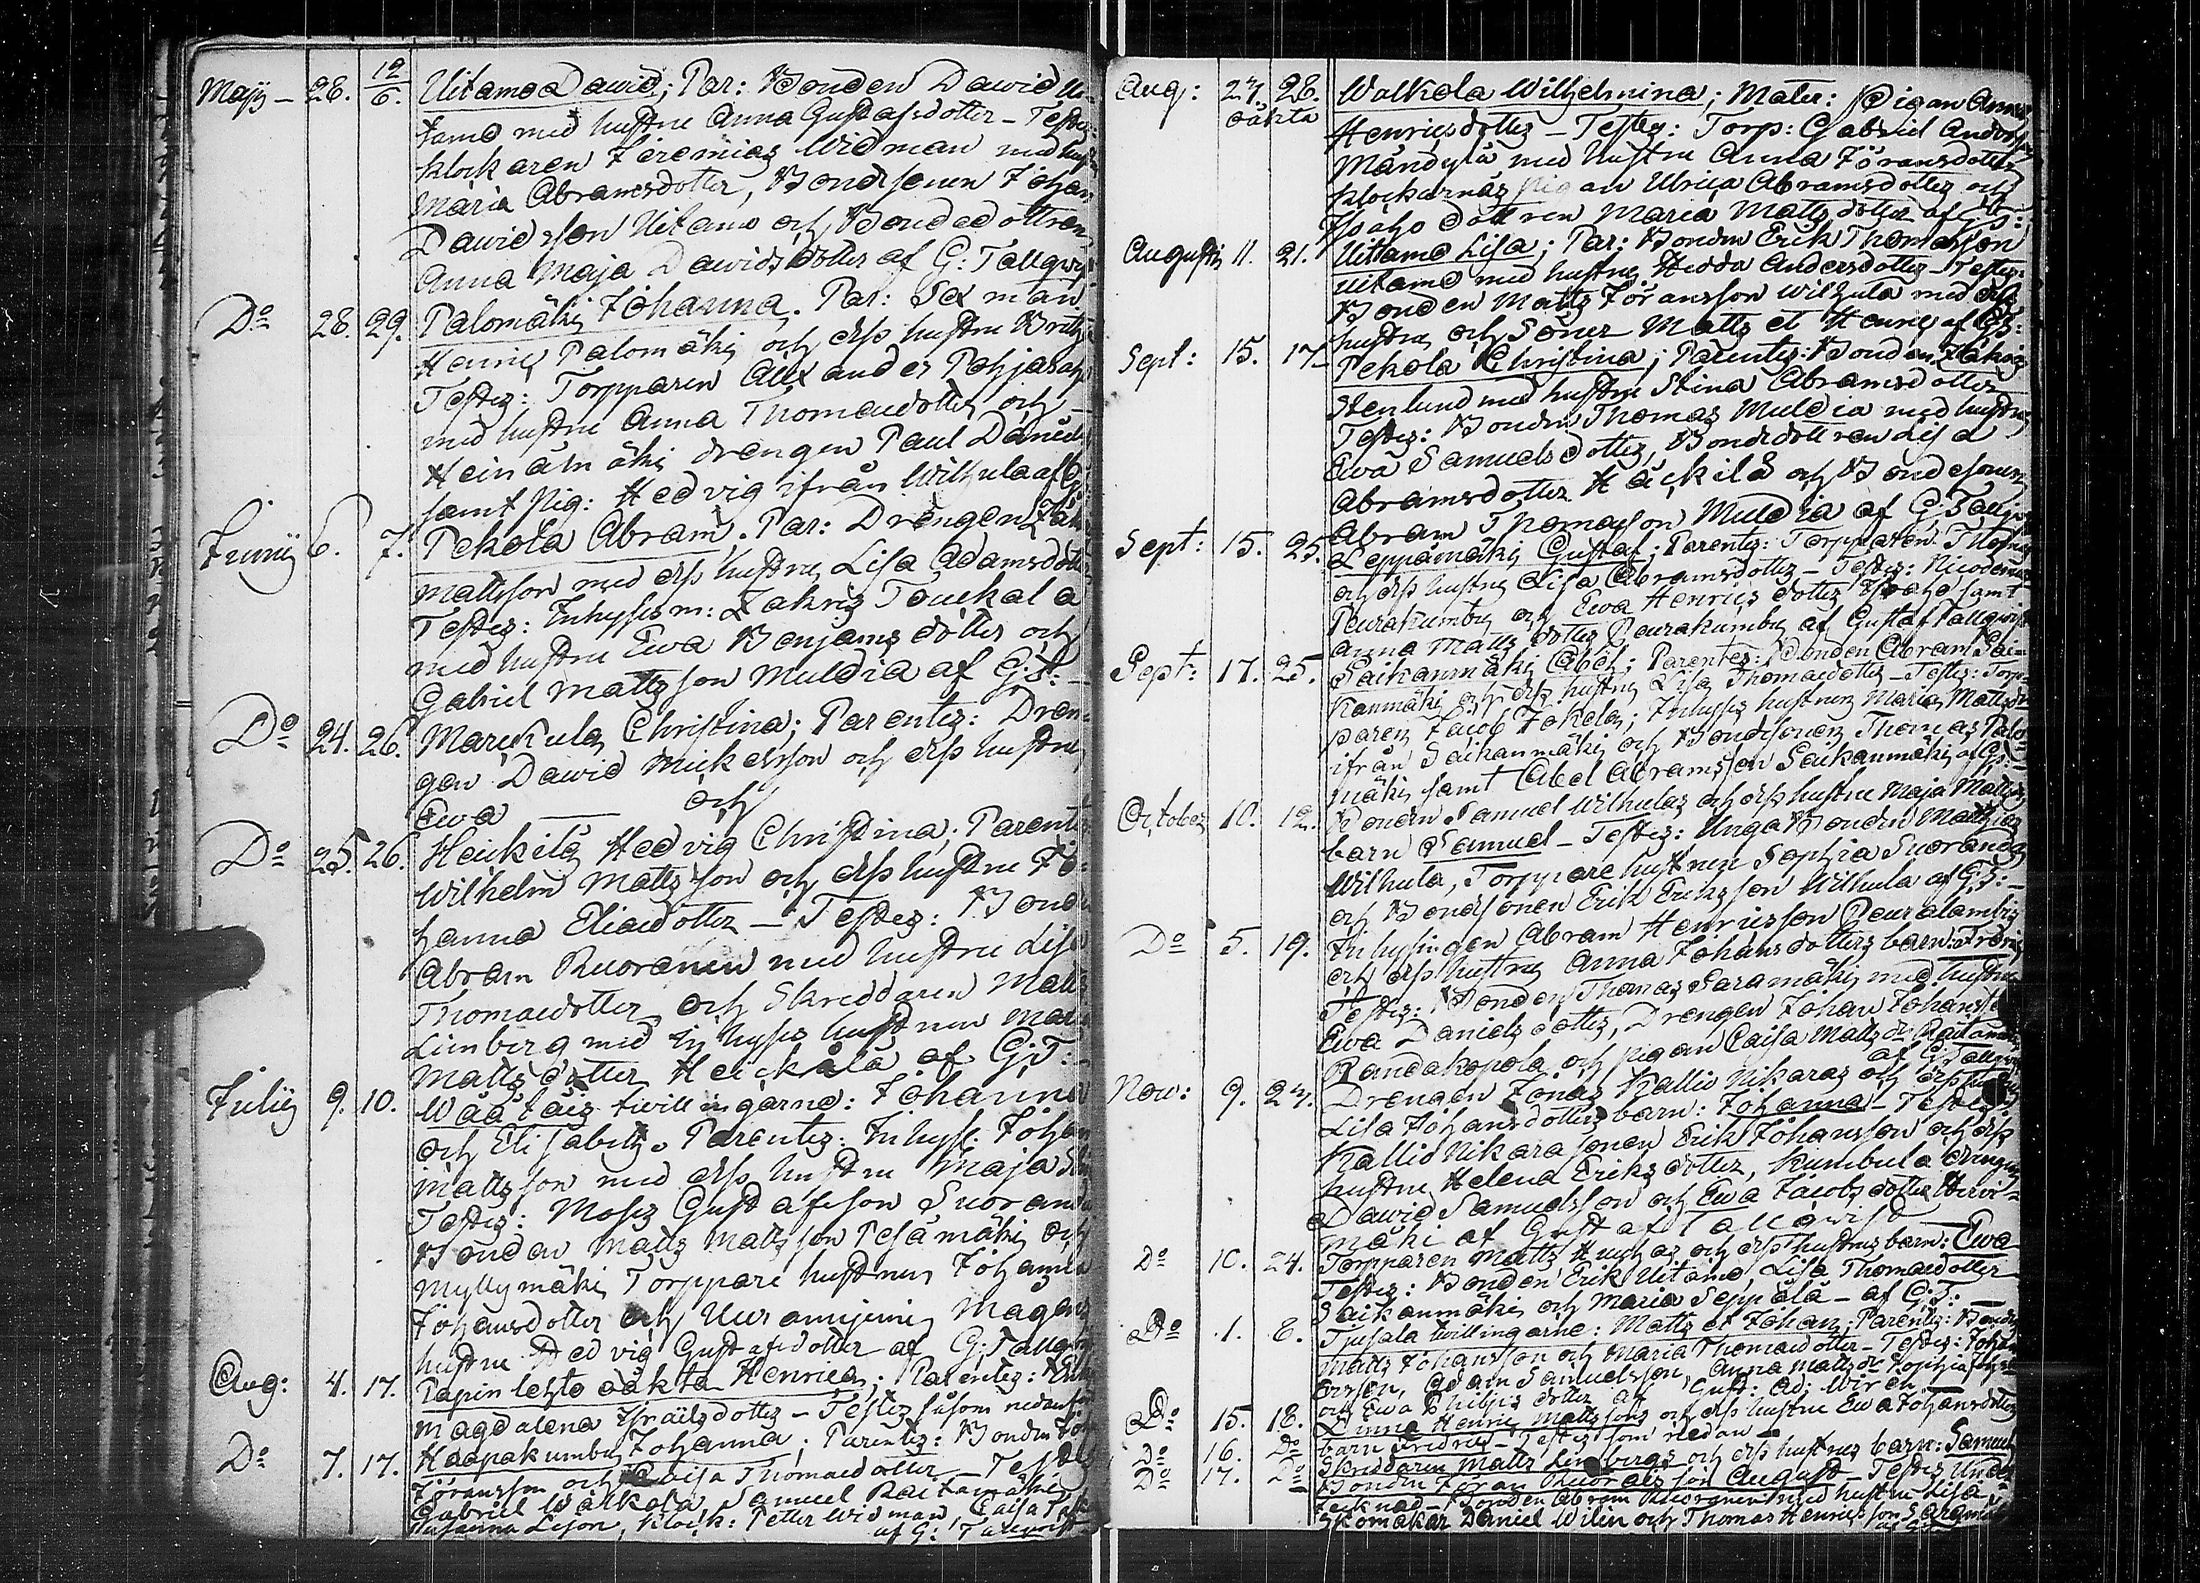 Maji – 28. 12/6. Uitamo David; Par: Bonden David Ui-
tamo med hustru Anna Gustafsdotter – Testes:
klockaren Jeremias Widman med hustru
Maria Abramsdotter, Bondesonen Johan
Davidsson Uitamo och Bondedottren
Anna Maja Davidsdotter af G: Tallqvist
Do 28. 29. Palomäki Johanna. Par: Sexman
Henric Palomäki och dess hustru Brita
Testes: Torpparen Alexander Pohjas
med hustru Anna Thomasdotter och
Heinämäki drengen Paul
samt Pig: Hedvig ifrån Wilhula af G
Junii 6. 7. Pekola Abram. Par: Drengen
Mattsson med dess hustru Lisa Adamsdotter
Testes: Inhysesm: Zakris Toukala
med hustru Ewa Benjamsdotter och
Gabriel Mattsson Muldia af G.T. –
Do 24. 26. Christina; Parentes: Dren-
gen David Mickelsson och dess hustru
Ewa — och
Do 25. 26. Heickilä Hedvig Christina; Parentes
Wilhelm Mattsson och dess hustru Jo-
hanna Eliædotter – Testes: Bond
Abram Ruoranen med hustru Lisa
Thomædotter och Skreddaren Matts
Limberg med inhyses hustrun Maria
Mattsdotter Heickälä af G:T:
Julii 9. 10. Wäätäis tvillingarne: Johanna
och Elisabeth. Parentes: Inhys. Johan
Mattsson med dess hustru Maja
Testes: Moses Gustafsson Suoranda
Bonden Matts Mattsson Pesämäki och
Myllymäki Torppare hustrun Johanna
Johansdotter och Magens
hustru Hedvig Gustafsdotter af G: Tallqvist
Aug: 4. 17. Papinlehto oäkta Henrica; Parentes:
Magdalena Israelsdotter – Testes såsom nedanför
Do 7. 17. Haapakumbu Johanna; Parentes: Bonden
Jöransson och Caisa Thomædotter – Testes
Gabriel Walkola, Samuel Rautamäki
Susanna Lison, klock: Petter Widman, Caisa
af G: Tallqvist
Aug: 27. 28. Walkola Wilhelmina; Mater: Pigan Anna
oäkta Henricsdotter – Testes: Torp: Gabriel Anders
Mändylä med hustru Anna Jöransdotter
klockarnas Pigan Ulrica Abramsdotter och
Isoaho dottren Maria Mattsdotter af G.T:
Augusti 11. 21. Uitamo Lisa; Par: Bonden Erik Thomasson
Uitamo med hustru Hedda Andersdotter – Testes:
Bonden Matts Jöransson Wilhula med dess
hustru och Söner Matts et Henric af G.T:
Sept: 15. 17. Pekola Christina; Parentes: Bonden Zakris
Stenlund med hustru Stina Abramsdotter
Testes: Bonden Thomas Muldia med hustru
Ewa Samuelsdotter, Bondedottren Lisa
Abramsdotter Häckilä och Bondesonen
Abram Thomasson Muldia af G: Tallqv
Sept: 15. 25. Leppämäki Gustaf; Parentes: Torpparen Thomas
och dess hustru Lisa Abramsdotter – Testes: Nicodemus
Peurakumbu och Ewa Henricsdotter Isoaho samt
Anna Mattsdotter Peurakumbu af Gustaf Tallqvist
Sept: 17. 25. Saikanmäki Abel; Parentes: Bonden Abram Sai-
kanmäki och dess hustru Lisa Thomædotter – Testes: Torp-
paren Jacob Jokela; Inhyses hustrun Maria Mattsdr
ifrån Saikanmäki och Bondesonen Thomas Palo-
mäki samt Abel Abramsson Saikanmäki af G:
October 10. 12. Bonden Samuel Wilhulas och dess hustru Maja Mattsd
barn Samuel – Testes: Unga Bonden Matthias
Wilhula, Torppare hustrun Sophia Suoranda
och Bondesonen Erik Ericsson Wilhula af G.T: –
Do 5. 19. Inhysingen Abram Henricsson Peuralambis
och dess hustru Anna Johansdotters barn: Fredric
Testes: Bonden Thomas Saramäki med hustru
Ewa Danielsdotter, Drengen Johan Johansson
Randakopola och pigan Caisa Matts dr Rautamäki
af G: Tallqv
Nov: 9. 24. Drengen Jonas Kallio Nikaras och dess hustru
Lisa Johansdotters barn: Johanna – Testes:
Kallio Nikara sonen Erik Johansson och dess
hustru Helena Eriksdotter, Kumbula drengen
David Samuelsson och Ewa Jacobsdotter Hirvi-
mäki af Gustaf Tallqvist
Do 10. 24. Torpparen Matts Huuhas och dess hustrus barn: Ewa
Testes: Bonden Erik Uitamo, Lisa Thomædotter
Saikanmäki och Maria Seppälä – af G:T: –
Do 1. 8. Tjusala tvillingarne: Matts et Johan; Parentes: Bonden
Matts Johansson och Maria Thomædotter – Testes: Johan
Ersson, Adam Samuelsson, Anna Matts dr, Sophia
och Ewa Philipsdotter af Gust: Ad: Wirén
Do 15. 18. Henric Mattssons och dess hustru Ewa Johansdotters
barn Fredric – Testes som nedan –
Do 16. Do Skreddaren Matts Limbergs och dess hustrus barn: Samuel
Do 17. Do Bonden Jöran Ruorais son August – Testes Under-
tecknad – Bonden Abram Ruoranen med hustru Lisa
Skomakar Daniel Wilén och Thomas Henricsson Saramäki